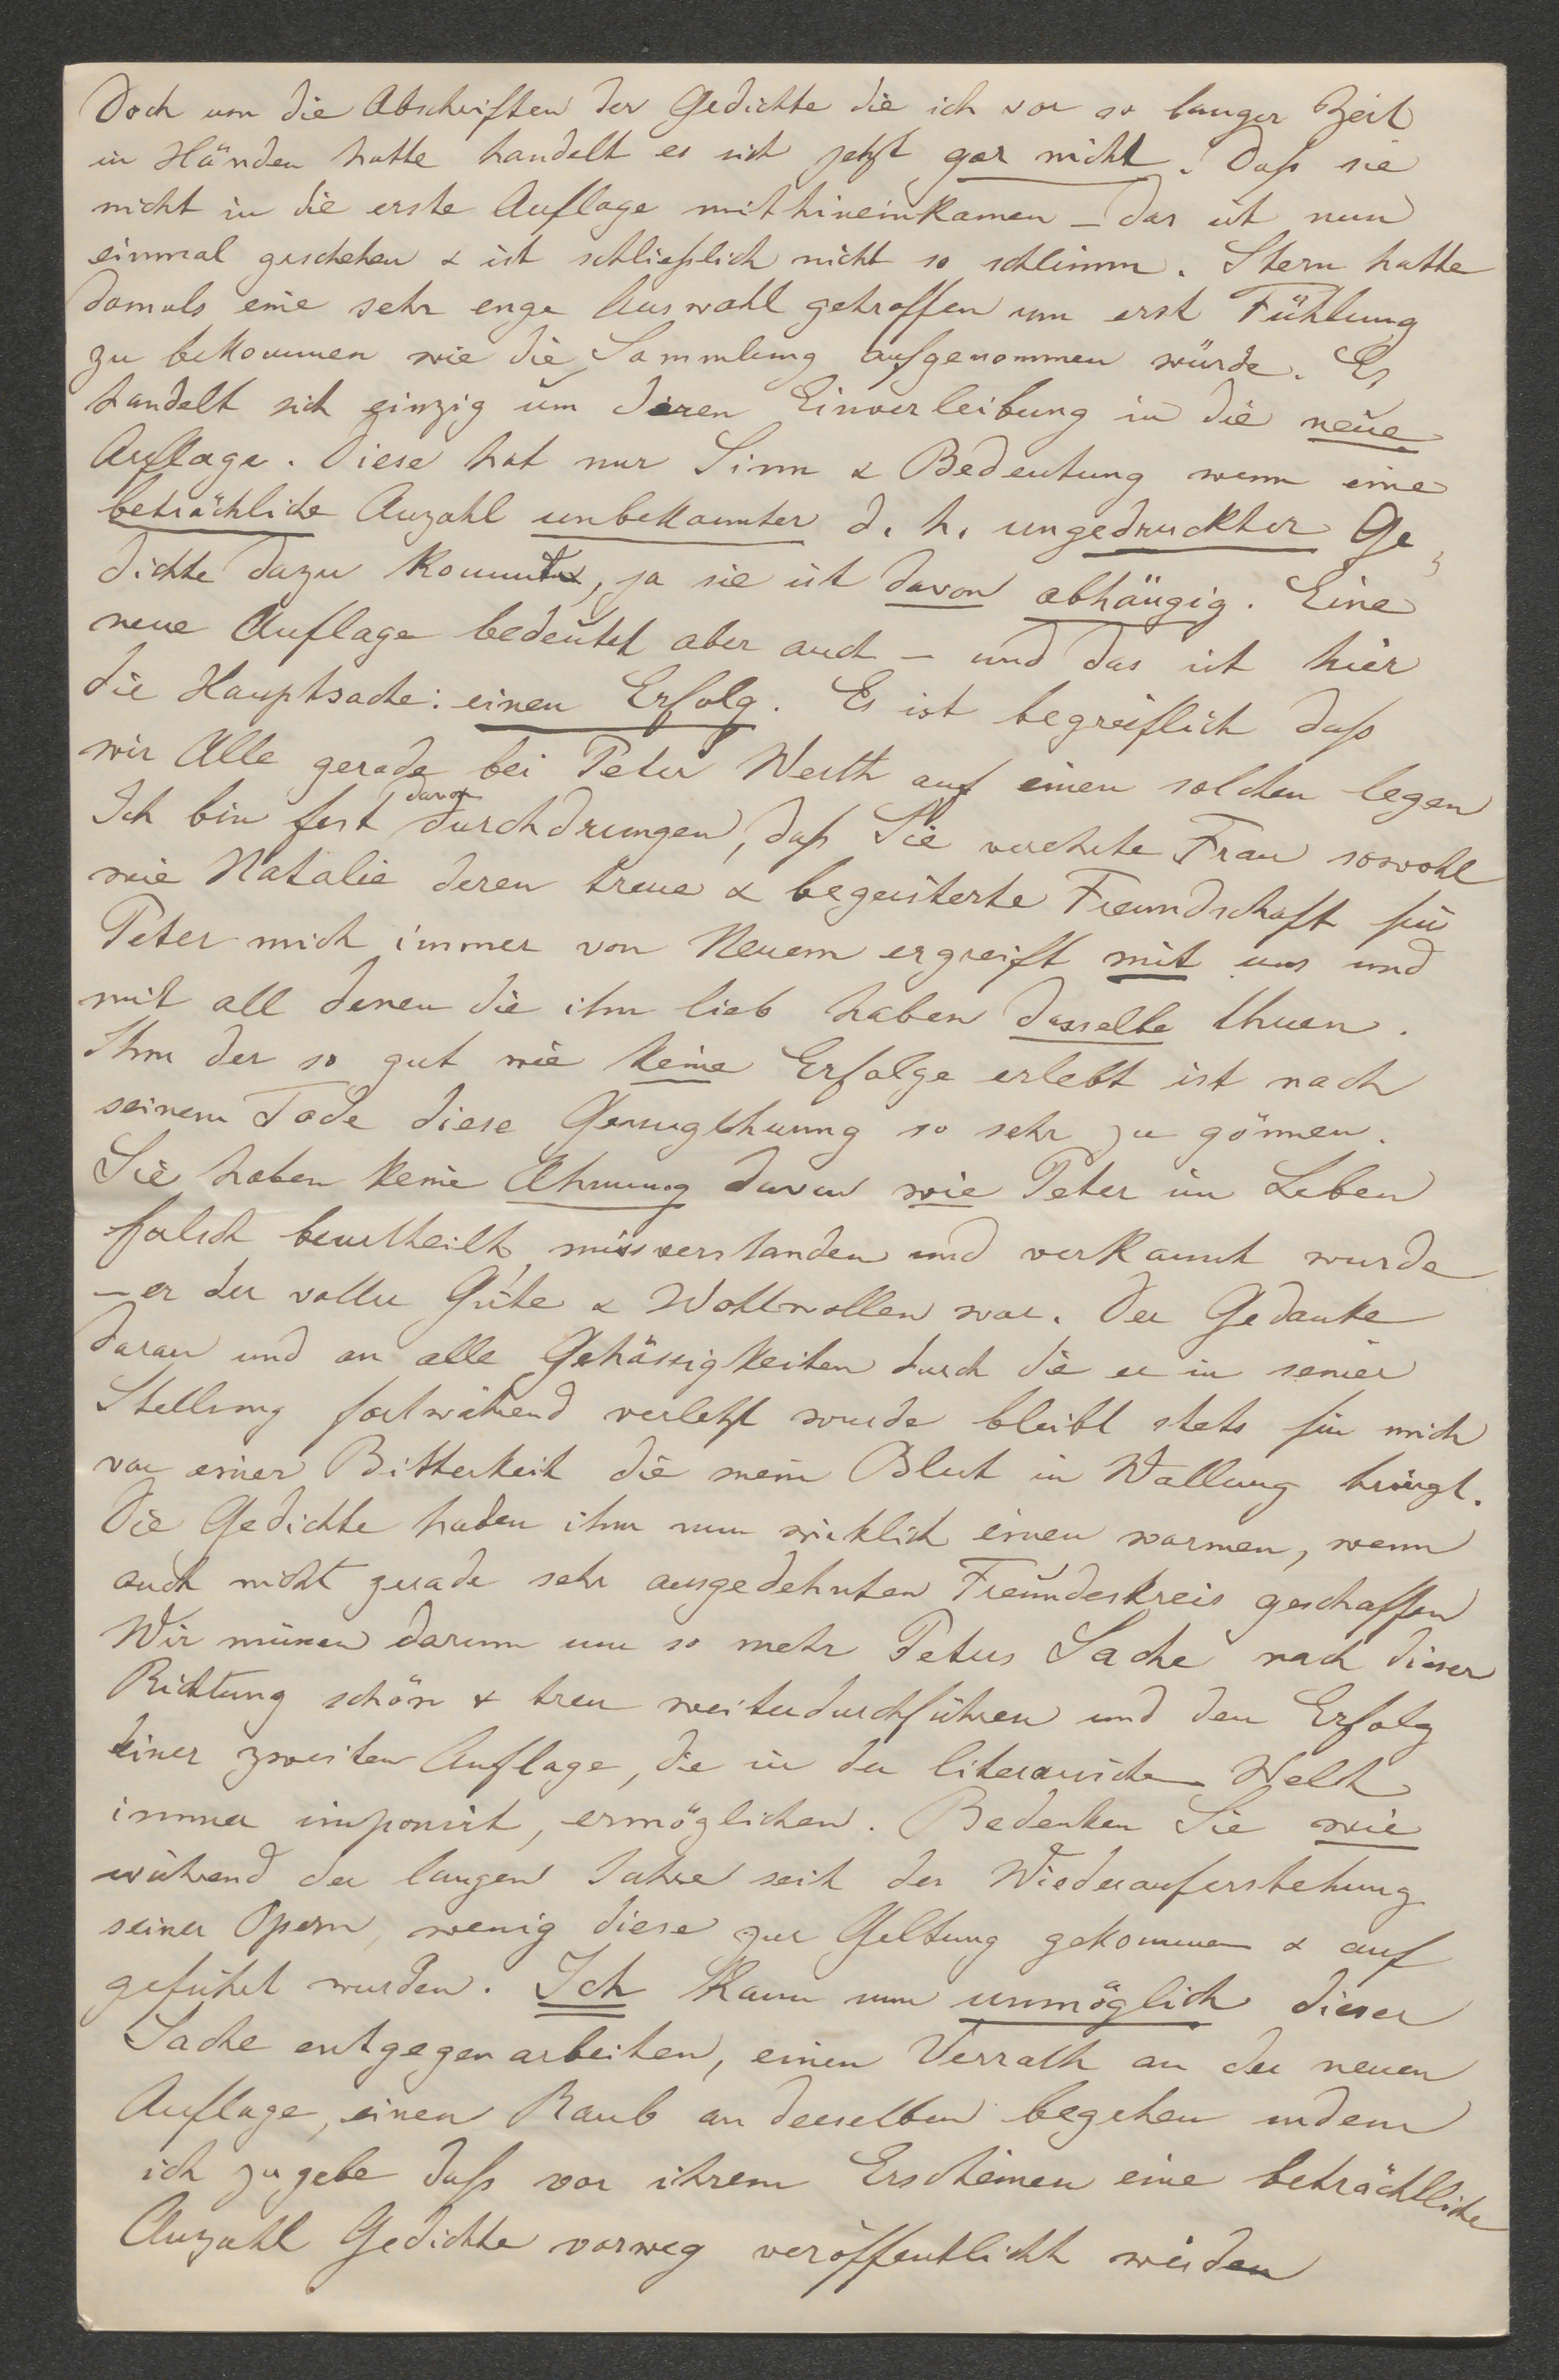 Doch um die Abschriften der Gedichte die ich vor so langer Zeit
in Händen hatte handelt es sich jetzt gar nicht. Daß sie
nicht in die erste Auflage mithineinkamen – das ist nun
einmal geschehen & ist schließlich nicht so schlimm. Stern hatte
damals eine sehr enge Auswahl getroffen um erst Fühlung
zu bekommen wie die Sammlung aufgenommen würde. Es
handelt sich einzig um deren Einverleibung in die neue
Auflage. Diese hat nur Sinn & Bedeutung wenn eine
beträchliche Anzahl unbekannter d. h. ungedruckter Ge-
dichte dazu kommt, ja sie ist davon abhängig. Eine
neue Auflage bedeutet aber auch – und das ist hier
die Hauptsache: einen Erfolg. Es ist begreiflich daß
wir Alle gerade bei Peter Werth auf einen solchen legen
Ich bin fest davon durchdrungen, daß Sie verehrte Frau sowohl
wie Natalie deren treue & begeisterte Freundschaft für
Peter mich immer von Neuem ergreift mit uns und
mit all denen die ihn lieb haben dasselbe thuen.
Ihm der so gut wie keine Erfolge erlebt ist nach
seinem Tode diese Genugthuung so sehr zu gönnen.
Sie haben keine Ahnung davon wie Peter im Leben
falsch beurtheilt, missverstanden und verkannt wurde
– er der voller Güte & Wohlwollen war. Der Gedanke
daran und an alle Gehässigkeiten durch die er in seiner
Stellung fortwährend verletzt wurde bleibt stets für mich
von einer Bitterkeit die mein Blut in Wallung bringt.
Die Gedichte haben ihm nun wirklich einen warmen, wenn
auch nicht gerade sehr ausgedehnten Freundeskreis geschaffen
Wir müssen darum um so mehr Peters Sache nach dieser
Richtung schön & treu weiterdurchführen und den Erfolg
einer zweiten Auflage, die in der literarischen Welt
immer imponirt, ermöglichen. Bedenken Sie wie
während der langen Jahre seit der Wiederauferstehung
seiner Opern, wenig diese zur Geltung gekommen & auf
geführt wurden. Ich kann nun unmöglich dieser
Sache entgegenarbeiten, einen Verrath an der neuen
Auflage, einen Raub an derselben begehen indem
ich zugebe daß vor ihrem Erscheinen eine beträchtliche
Anzahl Gedichte vorweg veröffentlicht werden